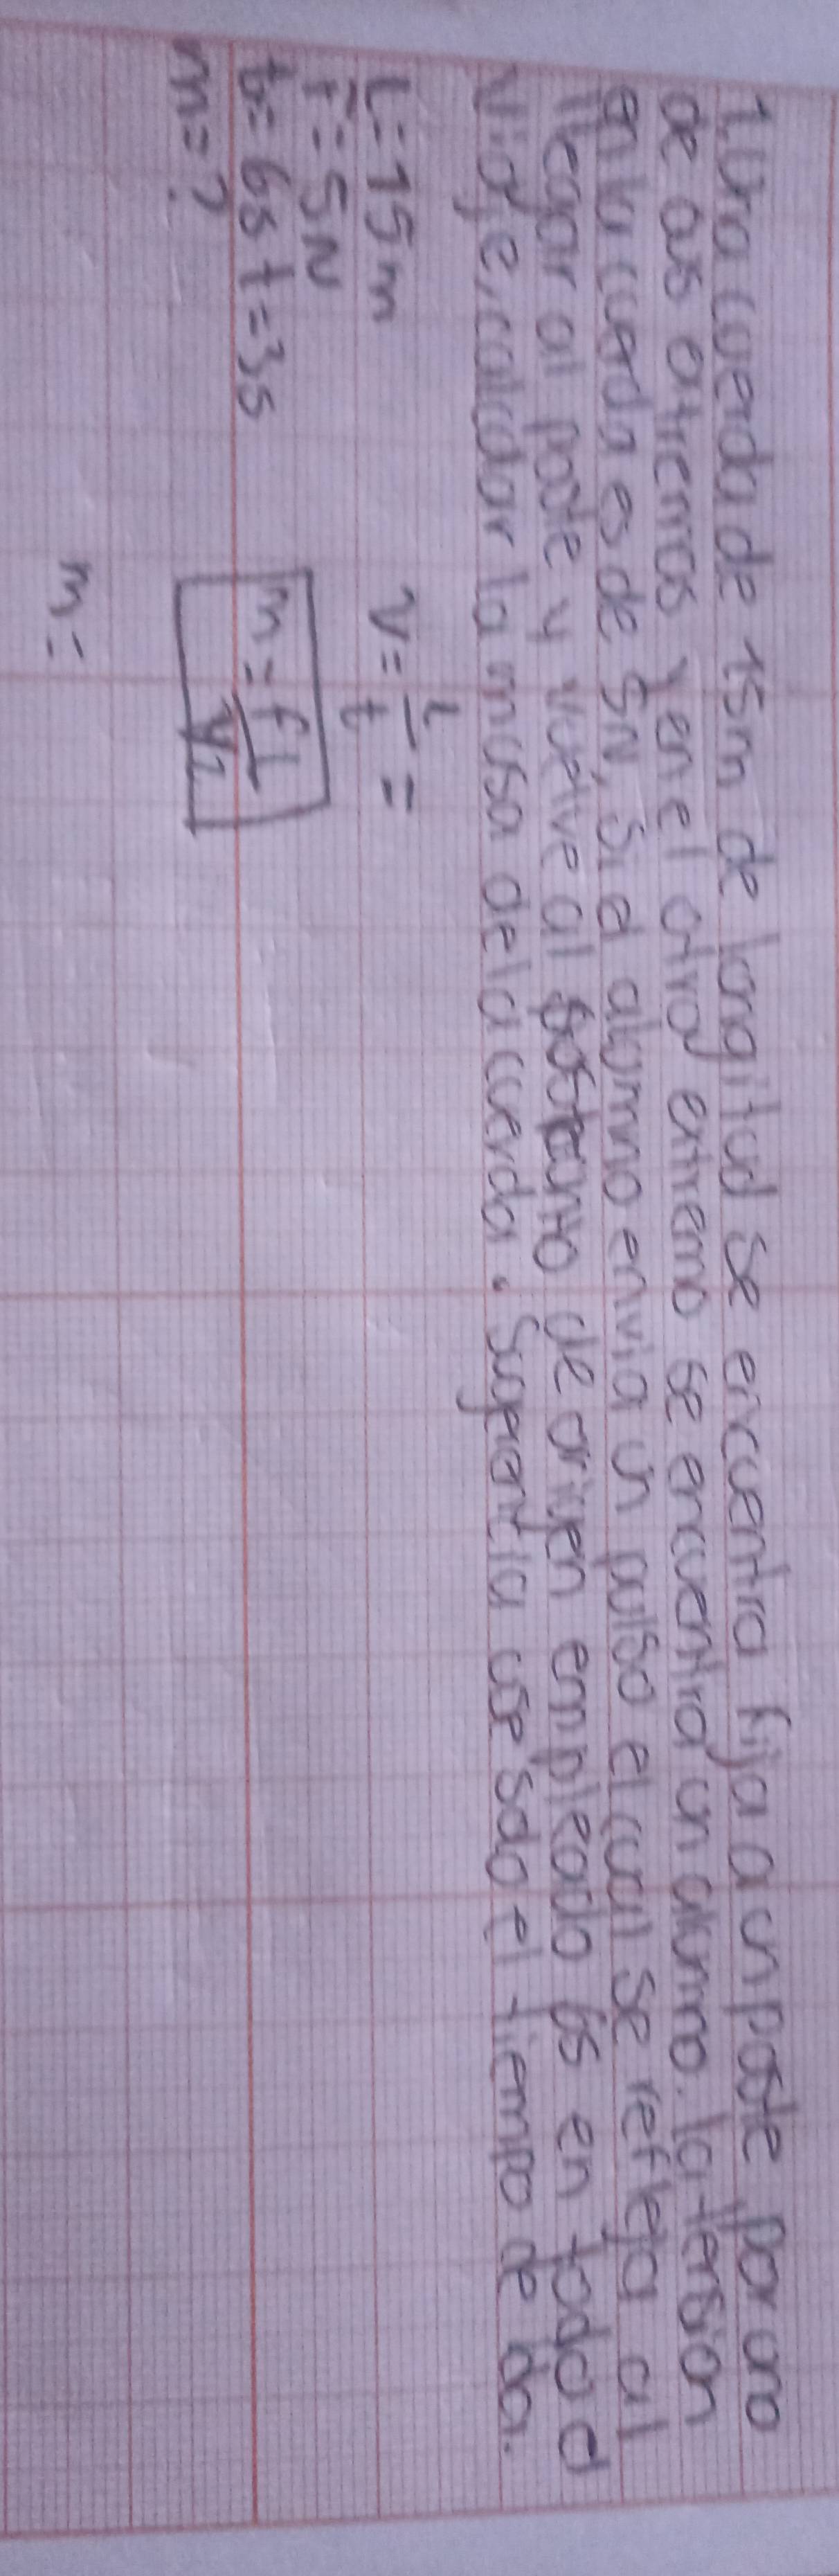 1. Una cuerda de 15m de longitud se encuentra fija a un poste por uno
de sus extremos y en el otro extremo se encuentra un alumno. la tension
en la cuerda es de 5N, si el alumno envia un pulso el cual se refleja al
llegar al poste y vuelve al de origen empleado 6s en todo el
viaje, calcular la masa de la cuerda. Sugerencia use solo el tiempo de ida.
L=15m
F=5N
t=6s t=3s
m=?
v= L/t =
m= FL/v2
m=